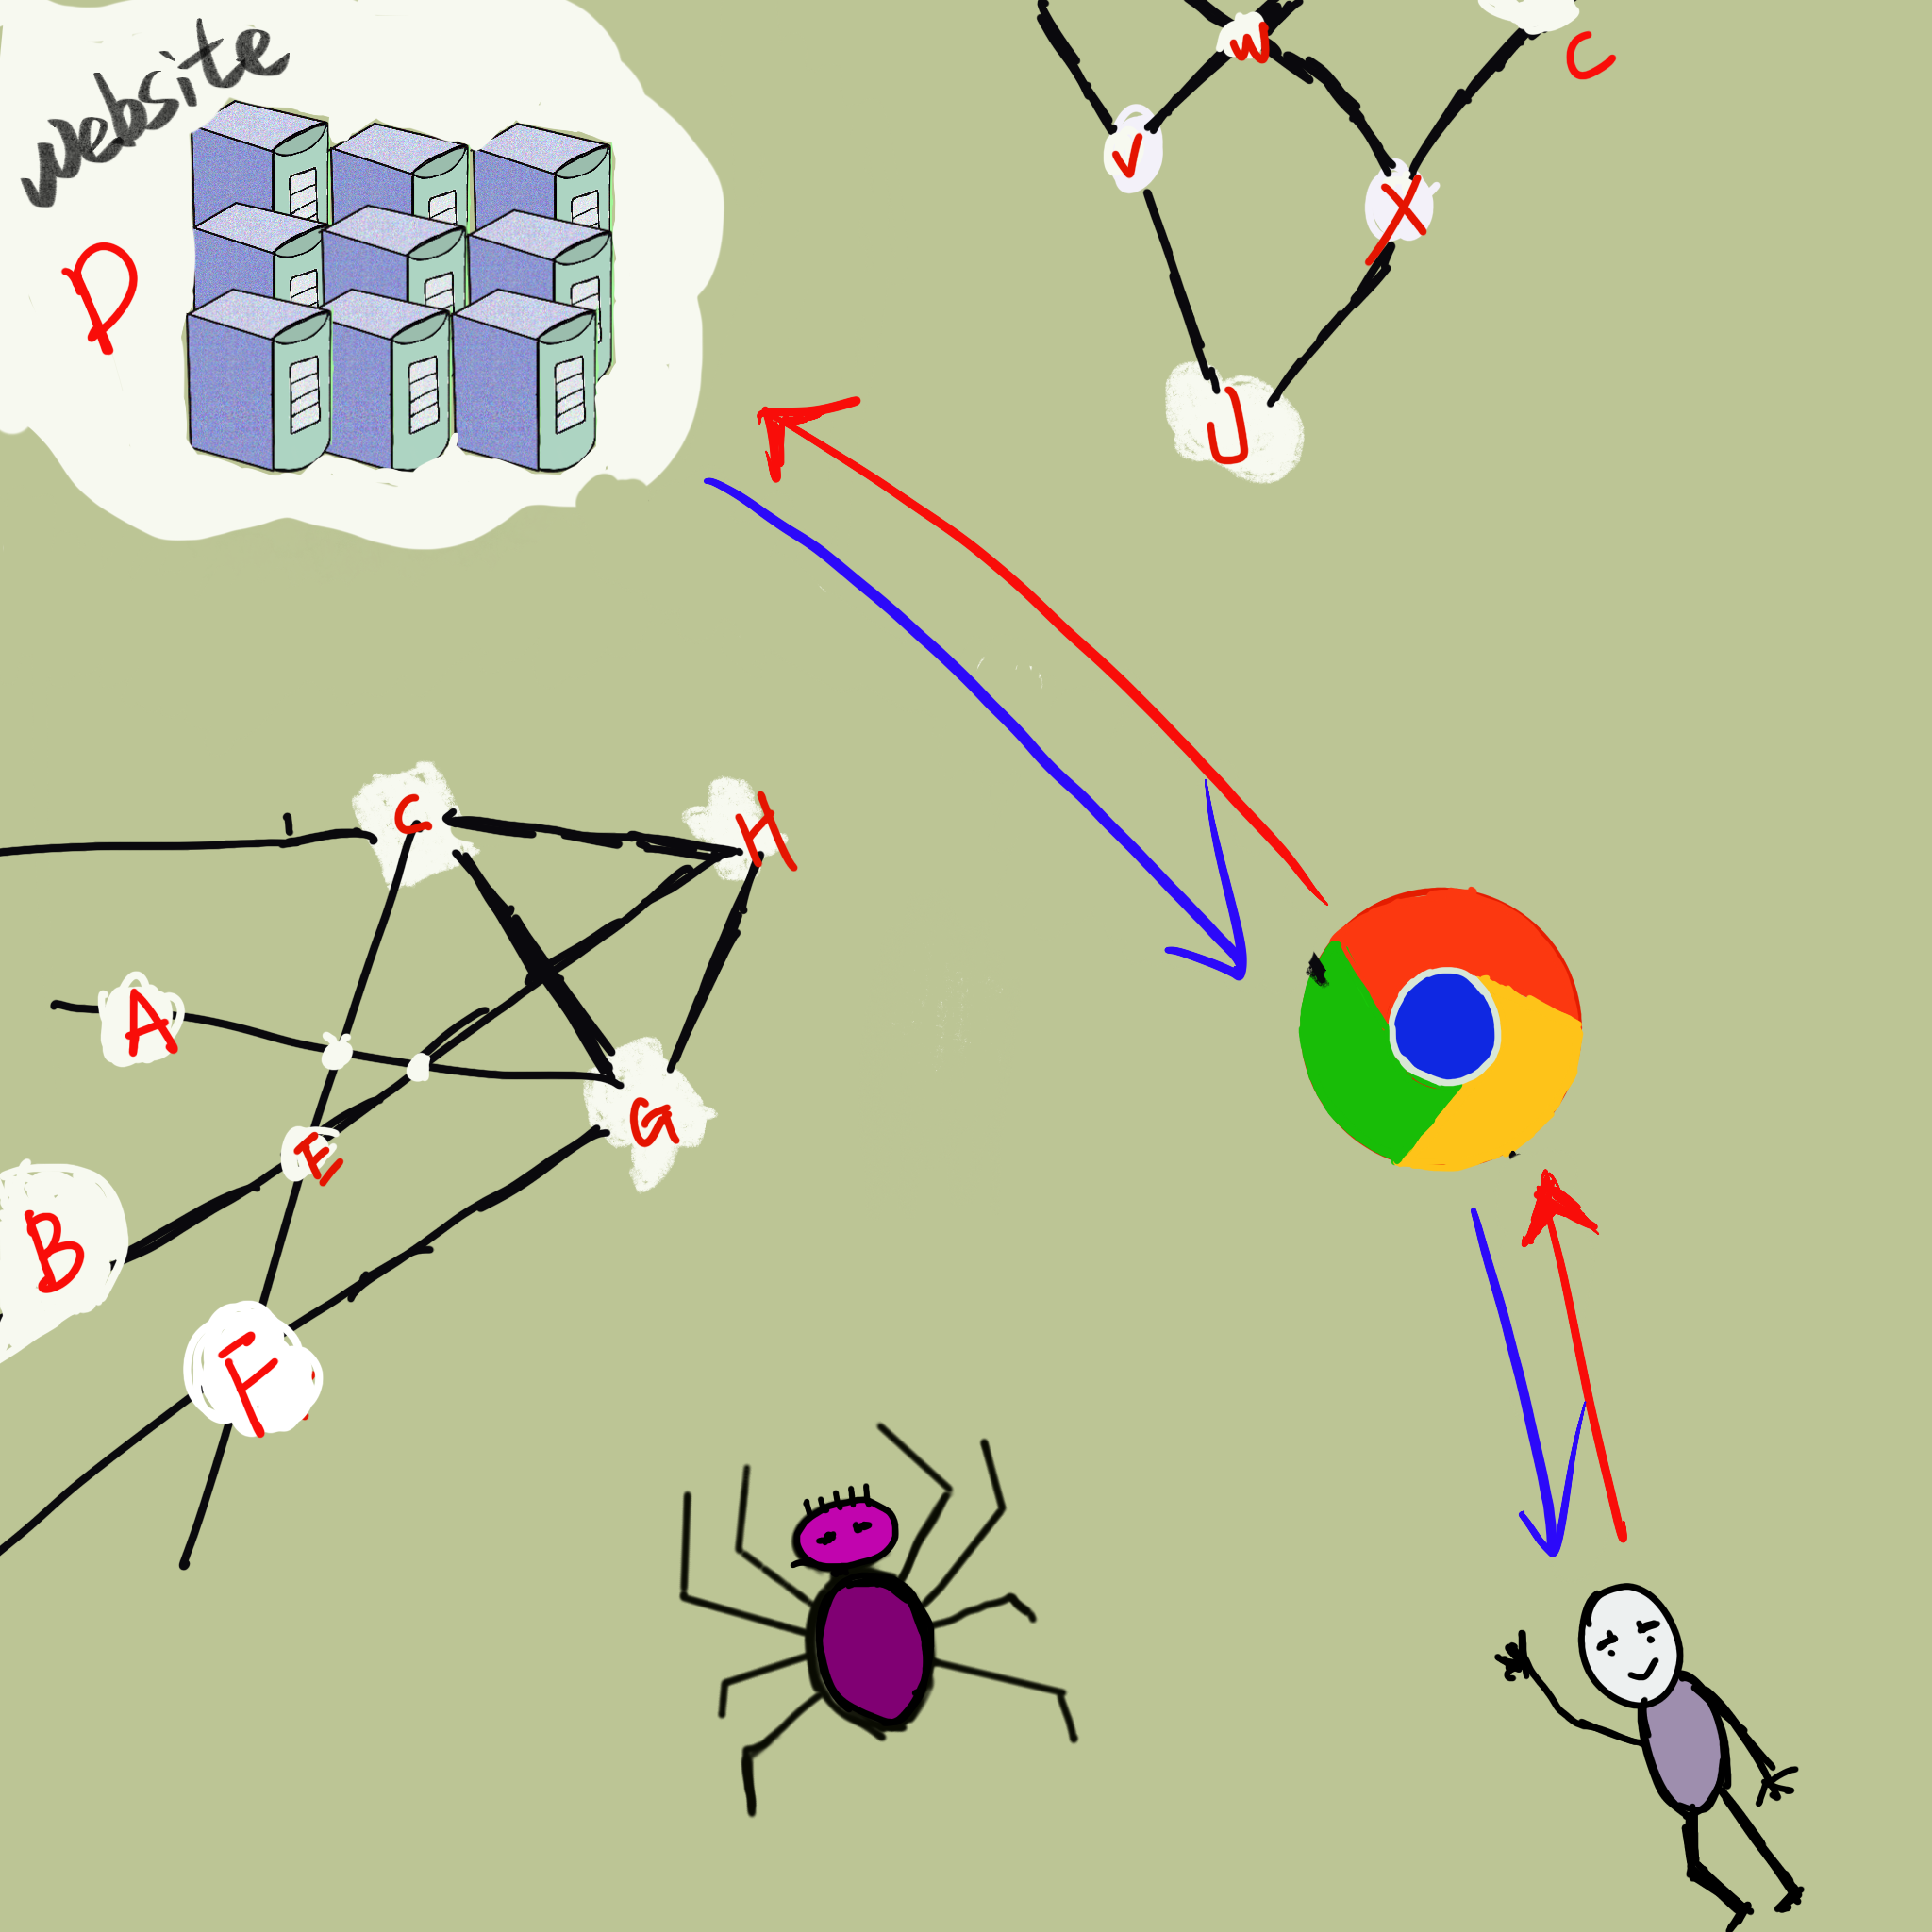 website
P
W
C
√
X
U
C
H
A
E
G
B
F